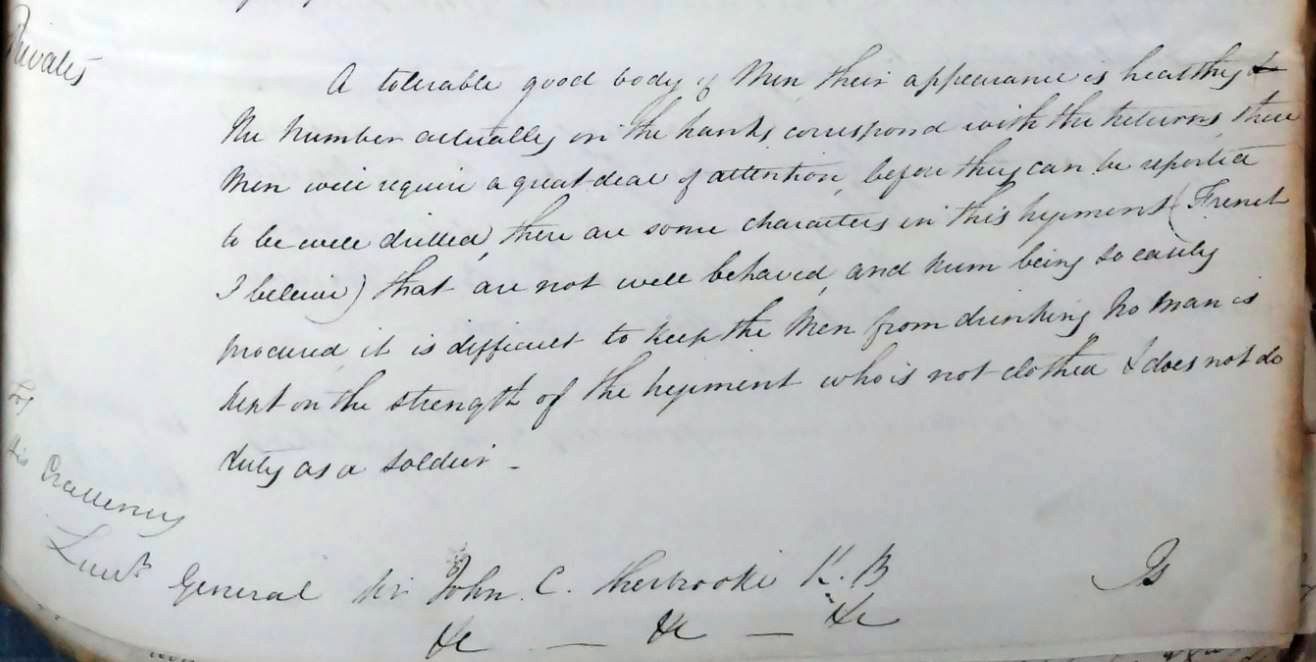 Privates
A tolerable good body of Men their appearance is healthy &
the number actually in the ranks correspond with the returns, these
Men will require a great deal of attention, before they can be reported
to be well drilled, there are some characters in this regiment (French
I beleive) that are not well behaved, and rum being so easily
procured it is difficult to keep the Men from drinking No Man is
kept on the strength of the regiment who is not clothed & does not do
duty as a soldier -
To
His Excellency
Lieut General Sir John C. Sherbrooke K.B
&c — &c — &c
Is